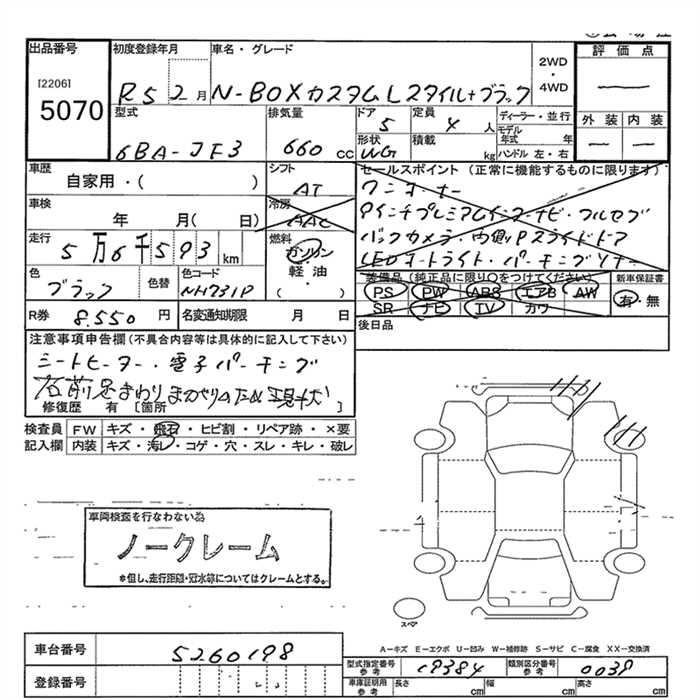 出品番号
[2206]
5070
初度登録年月
R5 2月
車名・グレード
N-BOXカスタムLスタイル+ブラック
2WD
・
4WD
評価点
外装 内装
型式
6BA-JF3
排気量
660 cc
ドア
5
形状
WG
定員
4 人
積載
kg
ディーラー・並行
モデル年式 年
ハンドル 左・右
車歴
自家用・( )
シフト
AT
セールスポイント(正常に機能するものに限ります)
ワンオーナー
車検
年 月( 日)
冷房
AAC
9インチプレミアムインターナビ・フルセグ
バックカメラ・内側Pスライドドア
LEDオートライト・パーキングソナー
走行
5万6千593km
燃料
ガソリン
・
軽油
・
( )
色
ブラック
色替
色コード
NH731P
装備品(純正品に限り○をつけてください)
PS PW ABS エアB AW
SR ナビ TV カワ
新車保証書
有・無
R券 8.550 円
名変通知期限 月 日
後日品
注意事項申告欄(不具合内容等は具体的に記入して下さい)
シートヒーター・電子パーキング
右前足まわり
現状
修復歴 有 [箇所 ]
検査員記入欄
FW キズ・飛石・ヒビ割・リペア跡・×要
内装 キズ・汚レ・コゲ・穴・スレ・キレ・破レ
車両検査を行なわない為
ノークレーム
*但し、走行距離・冠水等についてはクレームとする。
スペア
A－キズ E－エクボ U－凹み W－補修跡 S－サビ C－腐食 XX－交換済
車台番号
5260198
登録番号
型式指定番号 参考
19384
類別区分番号 参考
0039
車庫証明用 参考
長さ cm 幅 cm 高さ cm